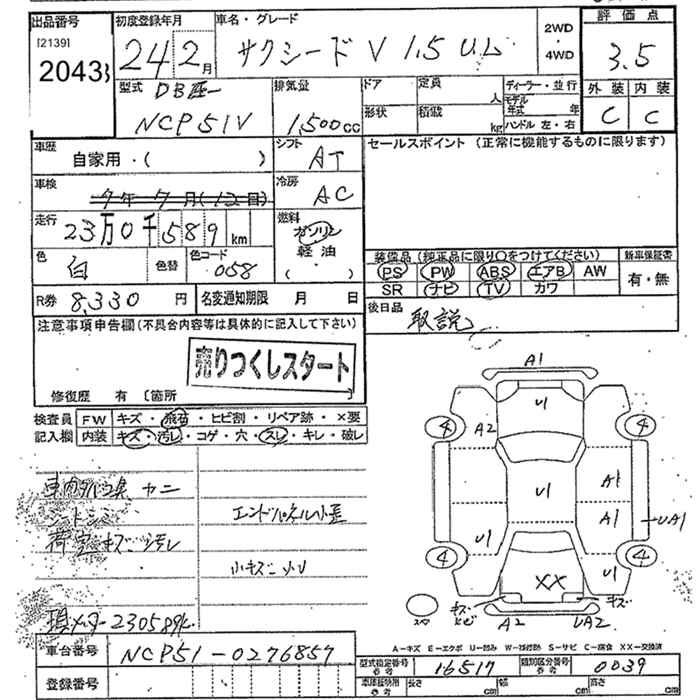 出品番号 初度登録年月 車名・グレード 2WD・4WD 評価点
[2139]
2043 24年2月 サクシード V 1.5 UL 3.5
型式 DBE- 排気量 ドア 定員 人 ディーラー・並行 外装 内装
モデル年式 年
NCP51V 1,500cc 形状 積載 kg ハンドル 左・右 C C
車歴 自家用・( ) シフト AT セールスポイント (正常に機能するものに限ります)
車検 7年7月(12日) 冷房 AC
走行 23万0千589km 燃料 ガソリン 軽油 ( )
色 白 色替 色コード 058
装備品 (純正品に限り○をつけてください) 新車保証書
PS PW ABS エアB AW 有・無
SR ナビ TV カワ
R券 8,330円 名変通知期限 月 日 後日品
取説
注意事項申告欄(不具合内容等は具体的に記入して下さい)
売りつくしスタート
修復歴 有 〔箇所 〕
検査員 FW キズ・飛石・ヒビ割・リペア跡・×要
記入欄 内装 キズ・汚レ・コゲ・穴・スレ・キレ・破レ
エンドパネル小歪
荷室キズ汚レ
小キズ小U
現メーター230589k
A1
U1
4 A2 4
U1 A1
A1 UA1
U1 U1
4 XX 4
スペア キズ ヒビ A2 UA2 キズ
A−キズ E−エクボ U−凹み W−修理跡 S−サビ C−腐食 XX−交換済
車台番号 NCP51-0276857 型式指定番号 参考 16517 類別区分番号 参考 0039
登録番号 車庫証明用 参考 長さ cm 幅 cm 高さ cm